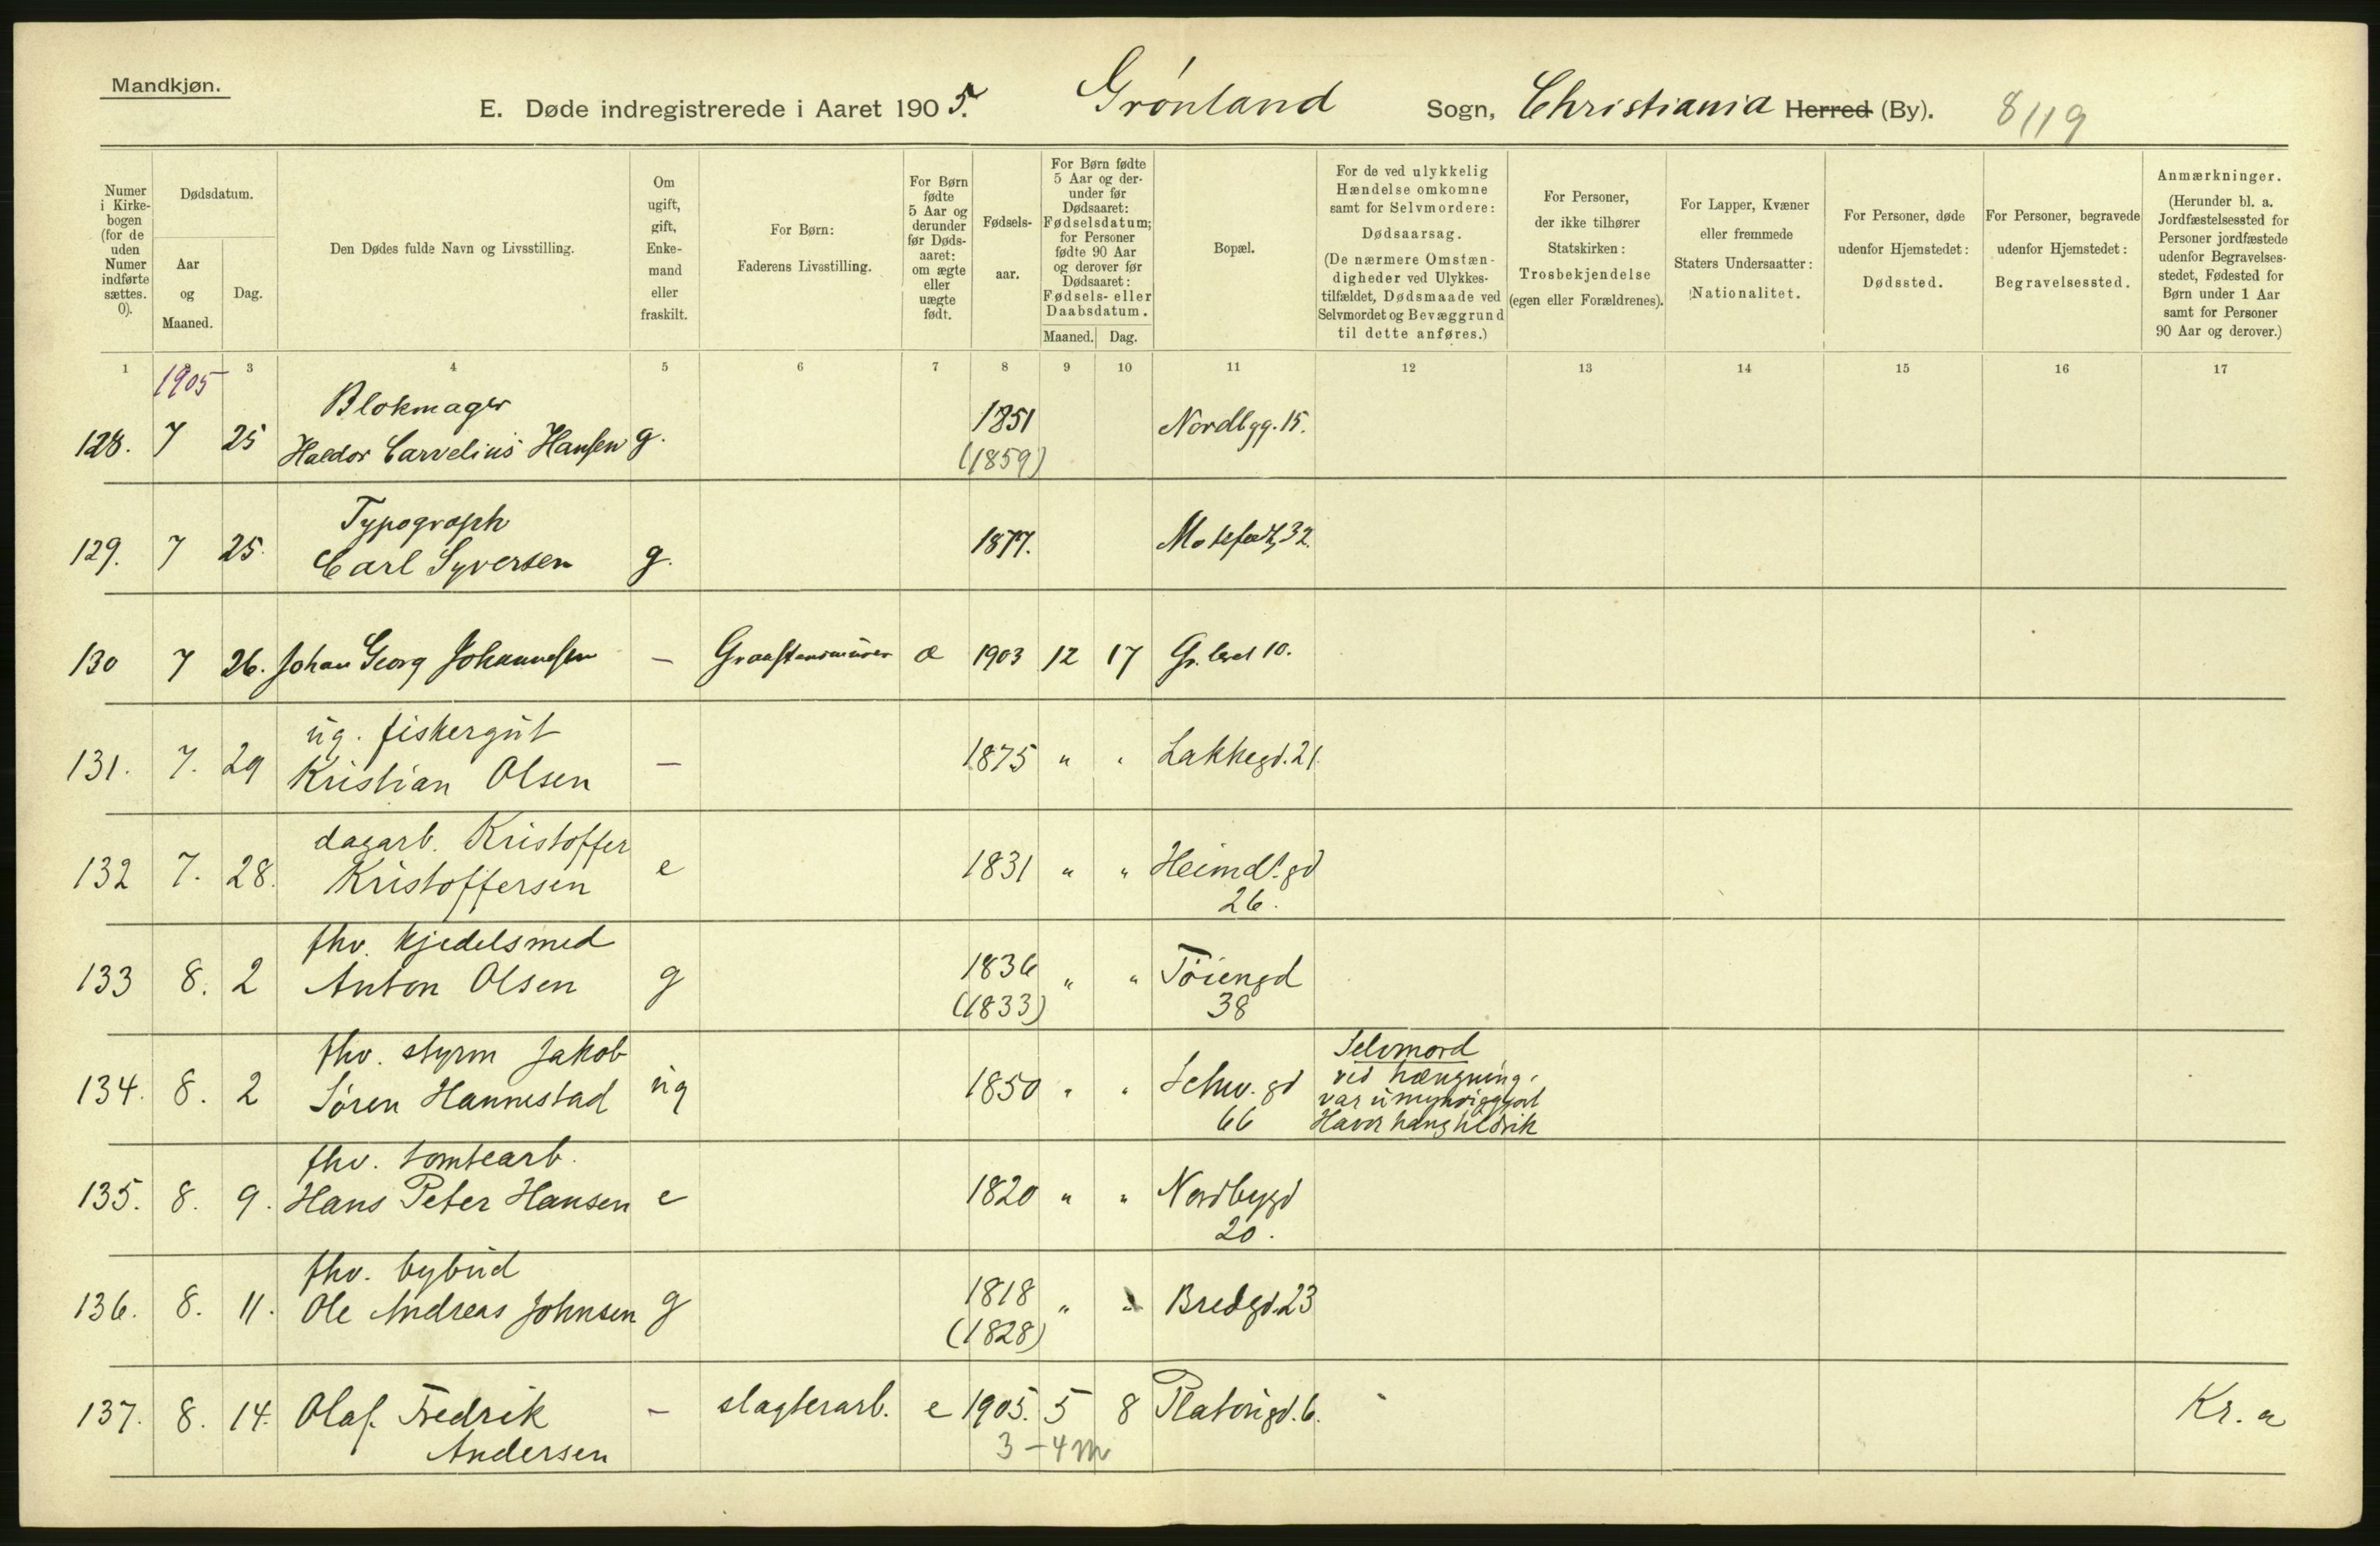 Mandkjøn.
E. Døde indregistrerede i Aaret 1905. Grønland Sogn, Christiania Herred (By). 8/19
Numer i Kirkebogen (for de uden Numer indførte sættes. 0).
Dødsdatum.
Aar og Maaned.
Dag.
Den Dødes fulde Navn og Livsstilling.
Om ugift, gift, Enkemand eller fraskilt.
For Børn:
Faderens Livsstilling.
For Børn fødte 5 Aar og derunder før Dødsaaret: om ægte eller uægte født.
Fødselsaar.
For Børn fødte 5 Aar og derunder før Dødsaaret: Fødselsdatum; for Personer fødte 90 Aar og derover før Dødsaaret: Fødsels- eller Daabsdatum.
Maaned. Dag.
Bopæl.
For de ved ulykkelig Hændelse omkomne samt for Selvmordere: Dødsaarsag.
(De nærmere Omstændigheder ved Ulykkestilfældet, Dødsmaade ved Selvmordet og Bevæggrund til dette anføres.)
For Personer, der ikke tilhører Statskirken: Trosbekjendelse (egen eller Forældrenes).
For Lapper, Kvæner eller fremmede Staters Undersaatter: Nationalitet.
For Personer, døde udenfor Hjemstedet: Dødssted.
For Personer, begravede udenfor Hjemstedet: Begravelsessted.
Anmærkninger.
(Herunder bl. a. Jordfæstelsessted for Personer jordfæstede udenfor Begravelsesstedet, Fødested for Børn under 1 Aar samt for Personer 90 Aar og derover.)
1 3 4 5 6 7 8 9 10 11 12 13 14 15 16 17
1905
Blokmager
128. 7 25 Haldor Carvelius Hansen g. 1851 Nordbgg. 15.
(1859)
Typograph
129. 7 25. Carl Syversen g. 1877. 32.
130 7 26. Johan Georg Johannesen — Graastensmurer æ 1903 12 17 Gr. leret 10.
ug. fiskergut
131. 7. 29 Kristian Olsen — 1875 " " Lakkegd. 21.
dagarb. Kristoffer
132 7. 28. Kristoffersen e 1831 " " Heimd. gd
26.
fhv. kjedelsmed
133 8. 2 Anton Olsen g 1836 " " Tøiengd
(1833) 38
fhv. styrm Jakob
134. 8. 2 Søren Hannestad ug 1850 " " Schw. gd
66
Selvmord
ved hængning.
var umyndiggjort
fhv. tomtearb.
135. 8. 9. Hans Peter Hansen e 1820 " " Nordbygd
20.
fhv. bybud
136. 8. 11. Ole Andreas Johnsen g 1818 " " Bredgd. 23
(1828)
137. 8. 14. Olaf Fredrik — slagterarb. e 1905. 5 8 Platougd. 6. Kr. a
Andersen 3–4 m